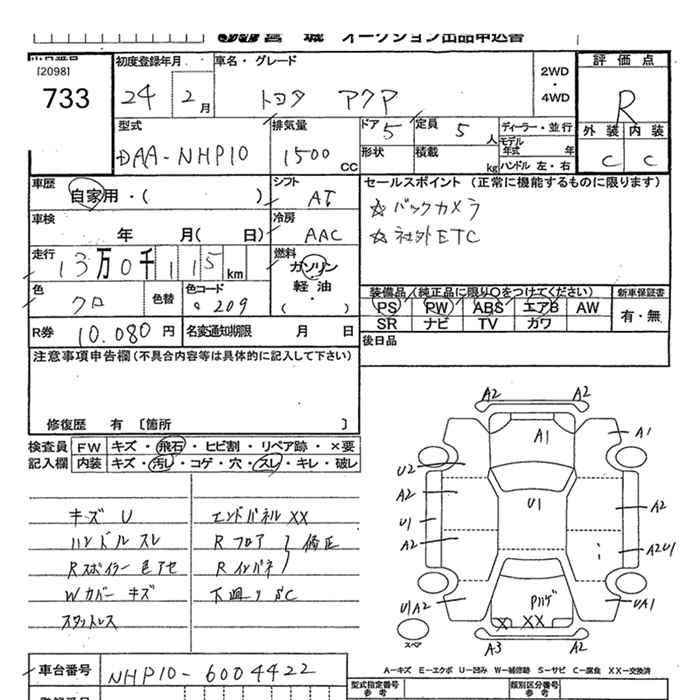 宮 城 オークション出品申込書
[2098]
733
初度登録年月
24 2月
車名・グレード
トヨタ アクア
2WD
・
4WD
評価点
R
外装 内装
C C
型式
DAA-NHP10
排気量
1500 CC
ドア 5
定員 5 人
形状
積載 kg
ディーラー・並行
モデル年式 年
ハンドル 左・右
車歴
自家用・( )
シフト
AT
セールスポイント (正常に機能するものに限ります)
☆バックカメラ
☆社外ETC
車検
年 月( 日)
冷房
AAC
走行
13万0千115km
燃料
ガソリン
軽油
( )
色
クロ
色替
色コード
209
装備品(純正品に限り○をつけてください)
PS PW ABS エアB AW
SR ナビ TV カワ
新車保証書
有・無
R券 10.080円
名変通知期限 月 日
後日品
注意事項申告欄(不具合内容等は具体的に記入して下さい)
修復歴 有 [箇所 ]
検査員記入欄
FW キズ・飛石・ヒビ割・リペア跡・×要
内装 キズ・汚レ・コゲ・穴・スレ・キレ・破レ
キズ U
ハンドル スレ
Rスポイラー 色アセ
Wカバー キズ
スタットレス
エンドパネル XX
Rフロア
Rインパネ
修正
下廻り SC
A2 A2
A1 A1
U2
A2 U1 A2
U1
A2 A2U1
U1A2 Pハゲ UA1
X XX
スペア
A3 A2
A-キズ E-エクボ U-凹み W-補修跡 S-サビ C-腐食 XX-交換済
車台番号
NHP10-6004422
型式指定番号
参考
類別区分番号
参考
登録番号